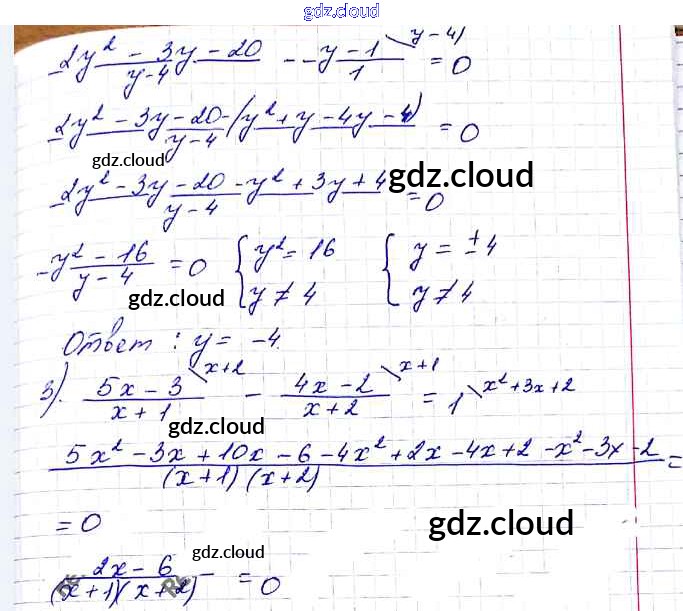 gdz.cloud
(2y² - 3y - 20)/(y - 4) - (y - 1)/1 \ y - 4) = 0
(2y² - 3y - 20 - (y² + y - 4y - 4))/(y - 4) = 0
gdz.cloud
(2y² - 3y - 20 - y² + 3y + 4)/(y - 4) = 0
gdz.cloud
(y² - 16)/(y - 4) = 0 { y² = 16 { y = ± 4
y ≠ 4 y ≠ 4
gdz.cloud
Ответ : y = -4.
3). (5x - 3)/(x + 1) \ x+2 - (4x - 2)/(x + 2) \ x+1 = 1 \ x² + 3x + 2
gdz.cloud
(5x² - 3x + 10x - 6 - 4x² + 2x - 4x + 2 - x² - 3x - 2)/((x + 1) (x + 2)) =
= 0
gdz.cloud
gdz.cloud
(2x - 6)/((x + 1)(x + 2)) = 0